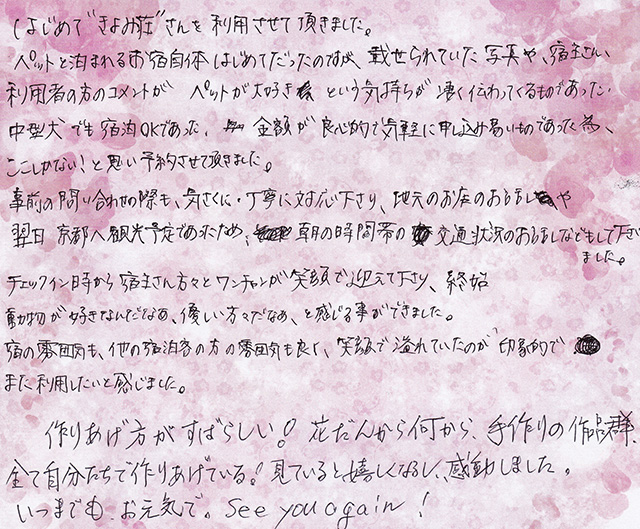 はじめて"きよみ荘"さんを利用させて頂きました。
ペットと泊まれるお宿自体はじめてだったのですが、載せられていた写真や、宿主さん、
利用者の方のコメントが ペットが大好き という気持ちが凄く伝わってくるものであった。
中型犬でも宿泊OKであった、金額が良心的で気軽に申し込み易いものであった為、
ここしかない!と思い予約させて頂きました。
事前の問い合わせの際も、気さくに・丁寧に対応下さり、地元のお店のお話しや
翌日 京都へ観光予定であったため、朝の時間帯の交通状況のお話しなどもして下さい
ました。
チェックイン時から宿主さん方々とワンチャンが笑顔で迎えて下り、終始
動物が好きなんだなあ、優しい方々だなあ、と感じる事ができました。
宿の雰囲気も、他の宿泊客の方の雰囲気も良く、笑顔で溢れていたのが印象的で
また利用したいと感じました。
作りあげ方がすばらしい!花だんから何から、手作りの作品群、
全て自分たちで作りあげている!見ていると嬉しくなるし、感動しました。
いつまでもお元気で。See you again!